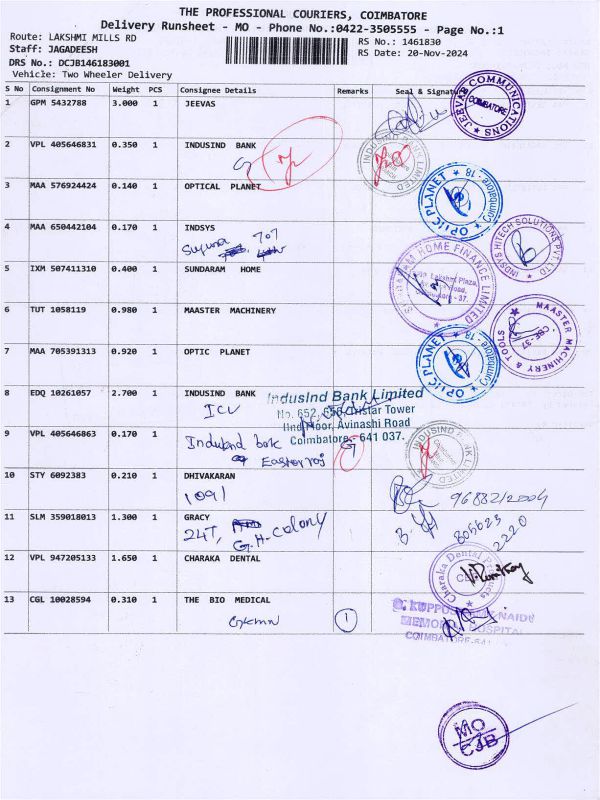 THE PROFESSIONAL COURIERS, COIMBATORE
Delivery Runsheet - MO - Phone No.:0422-3505555 - Page No.:1
Route: LAKSHMI MILLS RD RS No.: 1461830
Staff: JAGADEESH RS Date: 20-Nov-2024
DRS No.: DCJB146183001
Vehicle: Two Wheeler Delivery
S No Consignment No Weight PCS Consignee Details Remarks Seal & Signature
1 GPM 5432788 3.000 1 JEEVAS
JEEVAN COMMUNICATIONS COIMBATORE
2 VPL 405646831 0.350 1 INDUSIND BANK
INDUSIND BANK LIMITED
3 MAA 576924424 0.140 1 OPTICAL PLANET
OPTIC PLANET Coimbatore - 18
4 MAA 650442104 0.170 1 INDSYS
707
INDSYS HITECH SOLUTIONS PVT LTD
5 IXM 507411310 0.400 1 SUNDARAM HOME
SUNDARAM HOME FINANCE LIMITED
Lakshmi Plaza,
Road,
Coimbatore - 37.
6 TUT 1058119 0.980 1 MAASTER MACHINERY
MAASTER MACHINERY & TOOLS CBE-37
7 MAA 705391313 0.920 1 OPTIC PLANET
OPTIC PLANET Coimbatore - 18
8 EDQ 10261057 2.700 1 INDUSIND BANK
ICU
IndusInd Bank Limited
No. 652, Tristar Tower
IInd Floor, Avinashi Road
Coimbatore - 641 037.
9 VPL 405646863 0.170 1
INDUSIND BANK LIMITED
10 STY 6092383 0.210 1 DHIVAKARAN
1091
11 SLM 359018013 1.300 1 GRACY
247, G.H-colony
2220
12 VPL 947205133 1.650 1 CHARAKA DENTAL
Charaka Dental Products
13 CGL 10028594 0.310 1 THE BIO MEDICAL
1
G. KUPPUSWAMY NAIDU
MEMORIAL HOSPITAL
COIMBATORE-641
MO
CJB